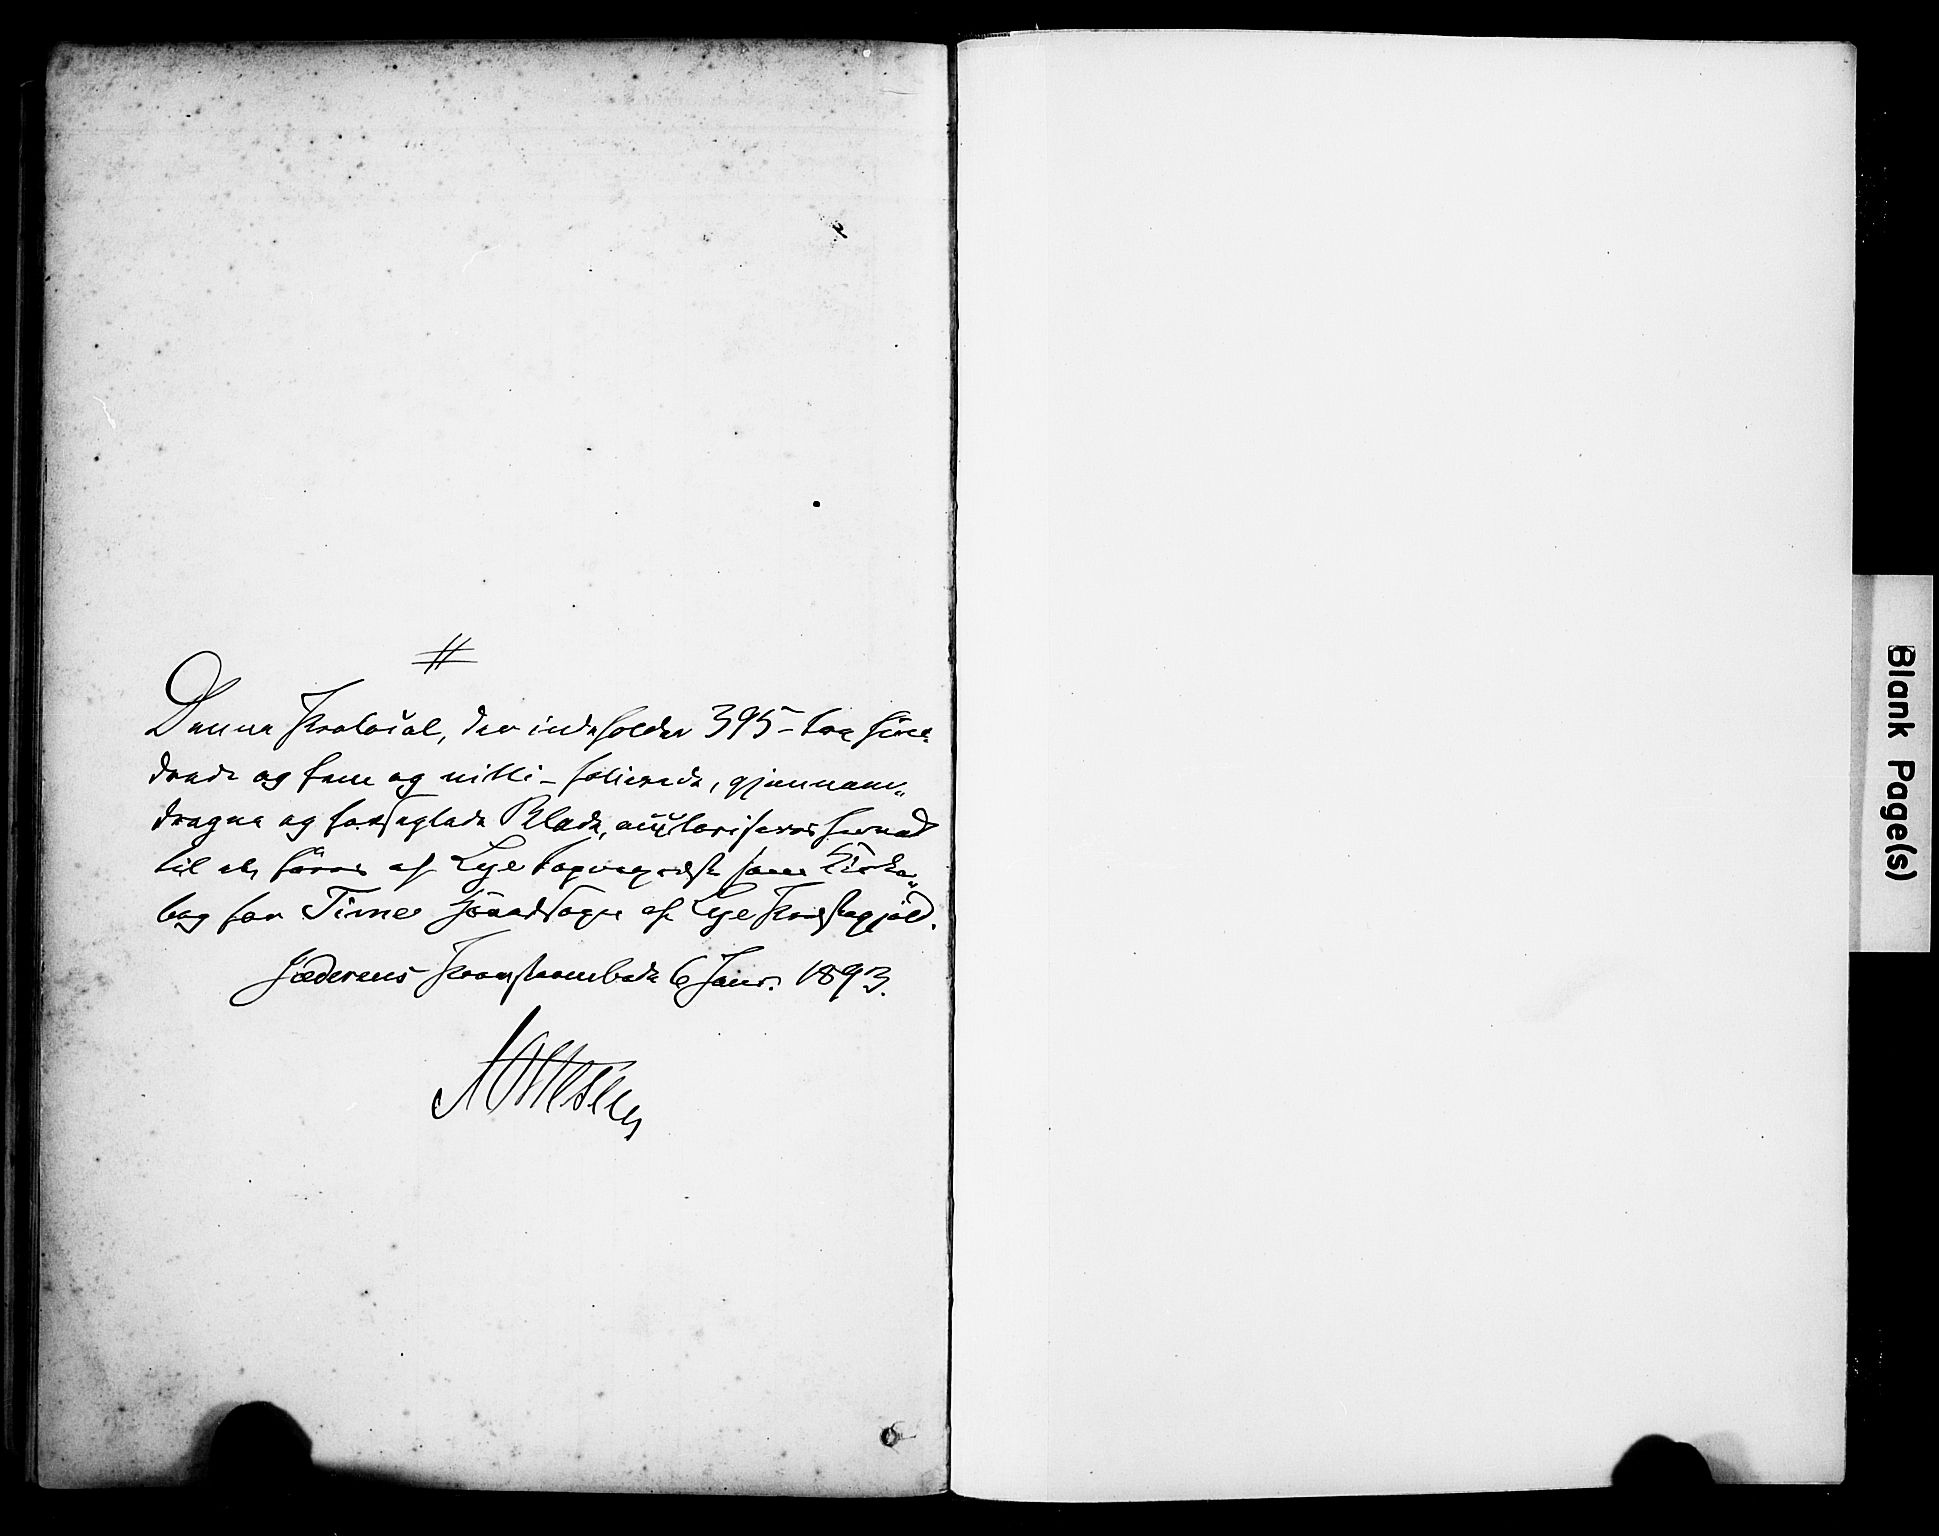 Denne Protocol, der indeholder 395 – tre hun-
drede og fem og nitti – folierede, gjennem-
dragne og forseglede Blade, authoriseres herved
til at føres af Lye Sogneprest som Kirke-
bog for Time Hovedsogn af Lye Præstegjeld.
Jæderens Provstembede 6 Janr. 1893.
Blank Page(s)